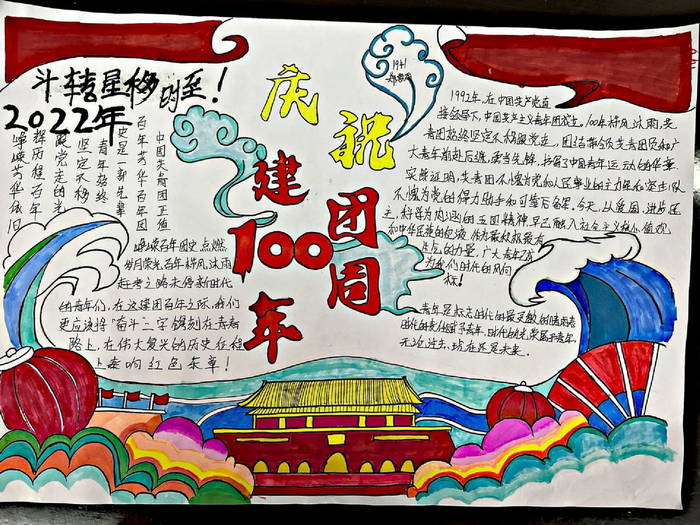 斗轉星移时至！
2022年
中国共青团正值
百年芳华百年团
史是一部先辈
青年始终
坚定不移
跟党走的光
辉历程百年
峥嵘芳华依旧
峥嵘百年团史点燃
岁月荣光,百年栉风沐雨
赶考之路未停新时代
的青年们，在这建团百年之际,我们
更应该将“奋斗”二字镌刻在青春
路上,在伟大复兴的历史征程
上奏响红色乐章！
庆祝
建团
100周
年
1992年,在中国共产党直
接领导下,中国共产主义青年团成立。100年栉风沐雨,共
青团始终坚定不移跟党走，团结带领共青团员和广
大青年前赴后继,勇当先锋，书写了中国青年运动的华章
实践证明,共青团不愧为党和人民事业的主力军和突击队
不愧为党的得力助手和可靠后备军。今天,以爱国、进步、民
主、科学为内涵的五四精神,早已融入社会主义核心价值观,
和中华民族的血液,作为最积极最有
生气的力量,广大青年
为我们时代的风向
标！
青年是标志时代的最灵敏的晴雨表
时代的责任赋予青年,时代的光荣属于青年
无论过去、现在还是未来.